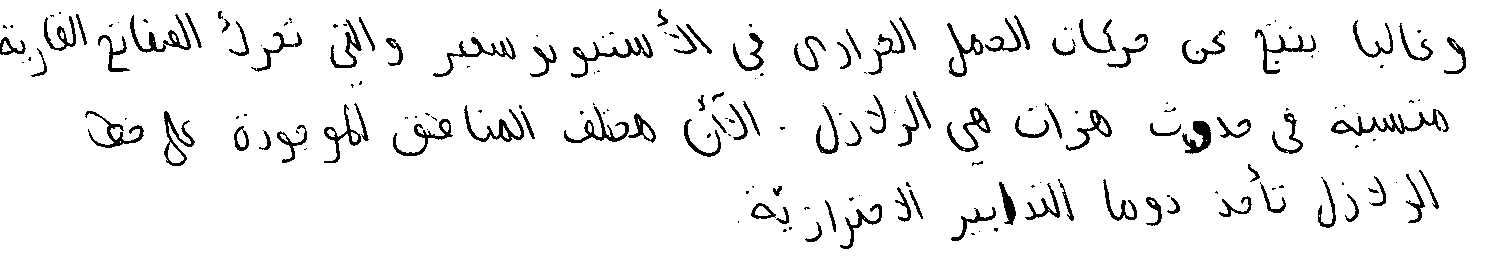 وغالبا ينتج عن حركات الحمل الحراري في الأستينوسفير والتي تحرك الصفائح القارية
متسببة في حدوث هزات هي الزلازل. الآن مختلف المناطق الموجودة على خط
الزلازل تأخذ دوما التدابير الاحترازية